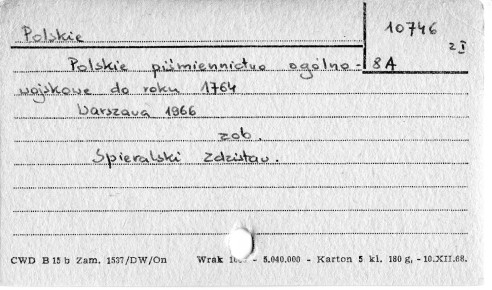 Polskie
10746
z I
8A
Polskie piśmiennictwo ogólno-
wojskowe do roku 1764
Warszawa 1966
zob.
Spieralski Zdzisław.
CWD B 15 b Zam. 1537/DW/On Wrak - 5.040.000 - Karton 5 kl. 180 g, - 10.XII.68.